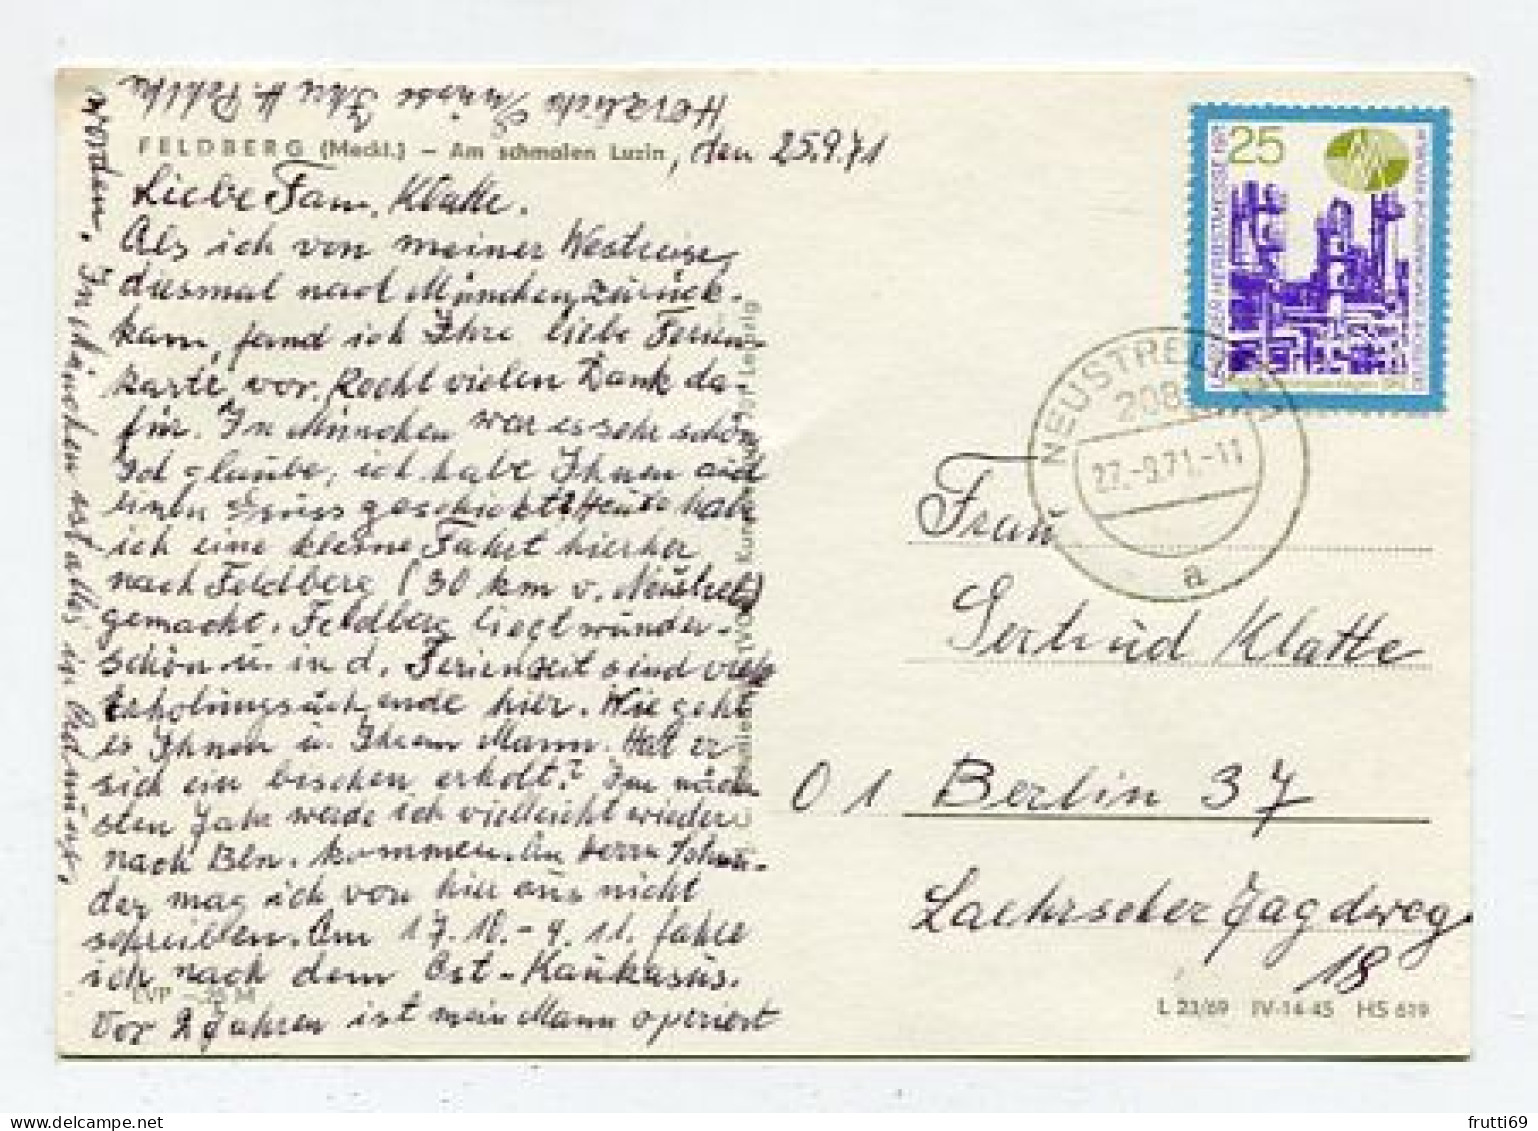 FELDBERG (Meckl.) – Am schmalen Luzin
, den 25.9.71
Liebe Fam. Klatte.
Als ich von meiner Westreise,
diesmal nach München, zurück-
kam, fand ich Ihre liebe Ferien-
karte vor. Recht vielen Dank da-
für. In München war es sehr schön
Ich glaube, ich habe Ihnen auch
einen Gruss geschickt? Heute habe
ich eine kleine Fahrt hierher
nach Feldberg (30 km v. Neustrel.)
gemacht. Feldberg liegt wunder-
schön u. in d. Ferienzeit sind viele
Erholungsuchende hier. Wie geht
es Ihnen u. Ihrem Mann. Hat er
sich ein bischen erholt? Im näch
sten Jahr werde ich vielleicht wieder
nach Bln. kommen. An Herrn
der mag ich von hier aus nicht
schreiben. Am 17.10.-9.11. fahre
ich nach dem Ost-Kaukasus.
Vor 2 Jahren ist mein Mann operiert
worden. Inzwischen ist alles in Ordnung.
Herzliche Grüsse Ihre H.
EVP
Leipzig
25
LEIPZIGER HERBSTMESSE 1971
DEUTSCHE DEMOKRATISCHE REPUBLIK
NEUSTRELITZ
208
27.-9.71.-11
a
Frau
Gertrud Klatte
01 Berlin 37
Jagdweg
18
L 23/69 IV-14-45 HS 619
frutti69
delcampe.net